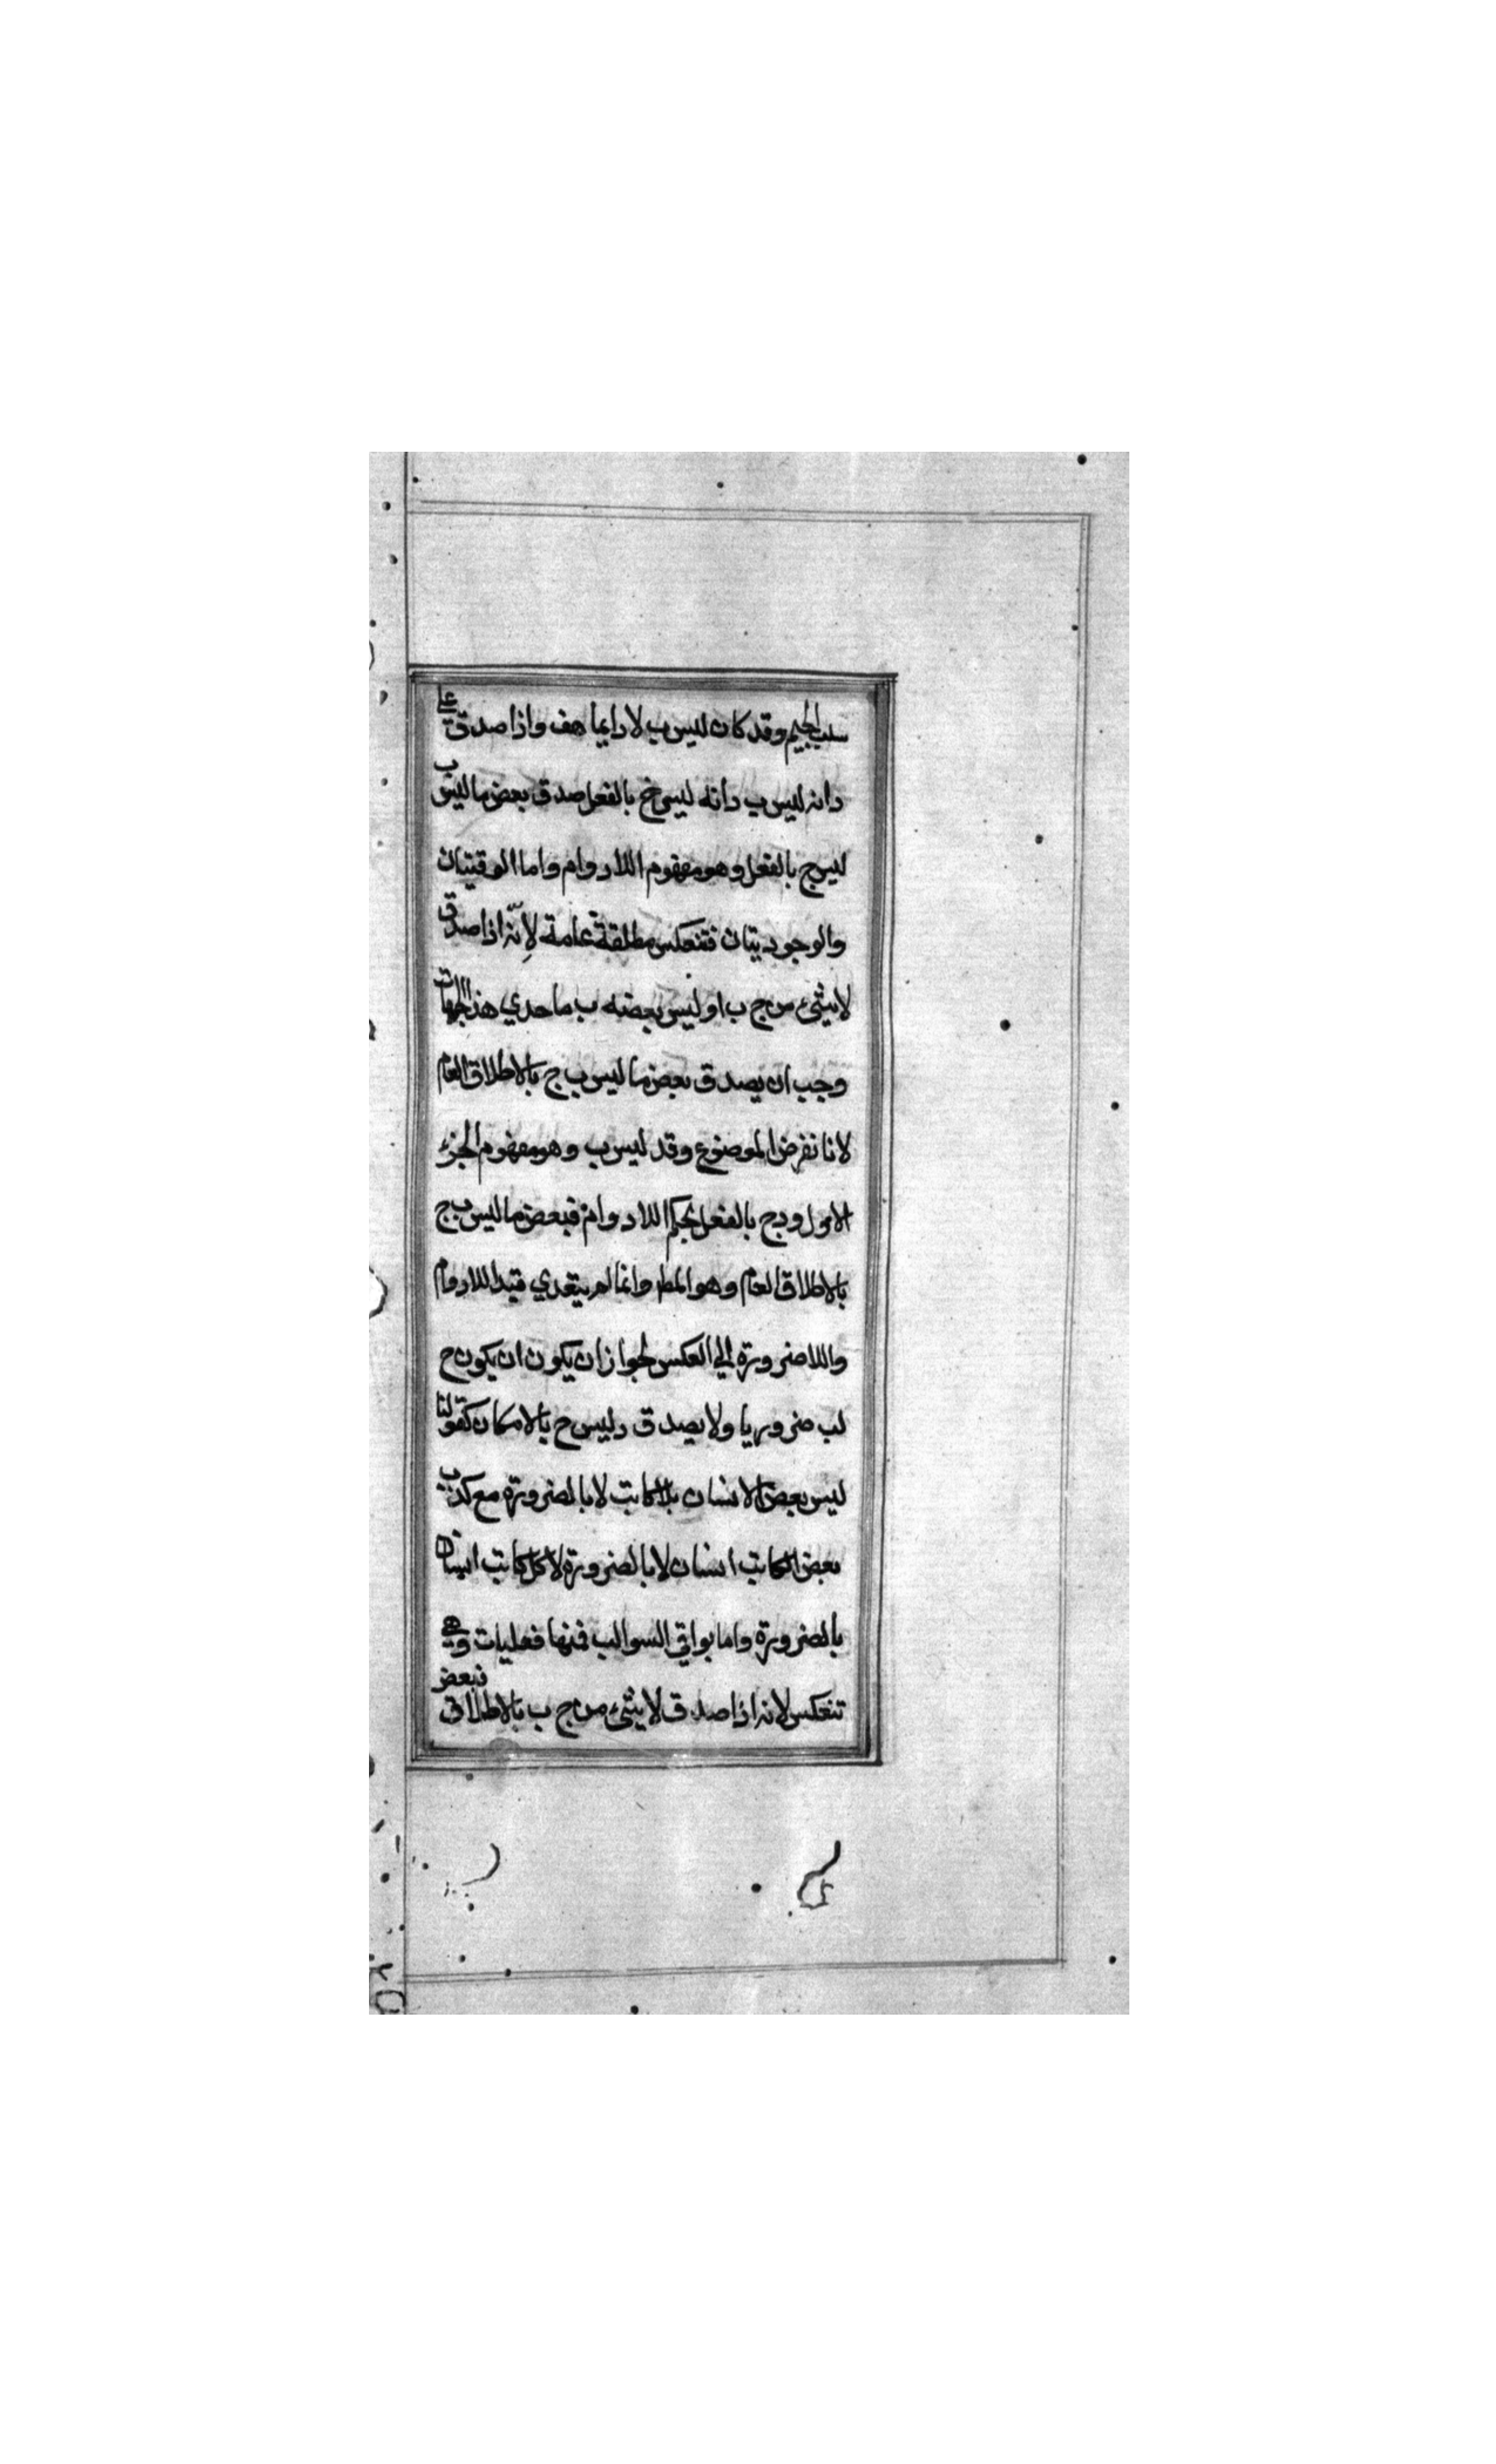 سلب الجيم وقد كان ليس ب لا دايما هف واذا صدق علي
د انه ليس ب وانه ليس ج بالفعل صدق بعض ما ليس ب
ليس ج بالفعل وهو مفهوم اللادوام واما الوقتيتان
والوجوديتان فتنعكس مطلقة عامة لانه اذا صدق
لا شئ من ج ب او ليس بعضه ب باحدي هذا الجهات
وجب ان يصدق بعض ما ليس ب ج بالاطلاق العام
لانا نفرض الموضوع وقد ليس ب وهو مفهوم الجزء
الاول ودج بالفعل بحكم اللادوام فبعض ما ليس ب ج
بالاطلاق العام وهو المط وانما لم يتعدي قيد اللادوام
واللاضرورة الي العكس لجواز ان يكون ان يكون ج
لب ضروريا ولا يصدق د ليس ج بالامكان كقولنا
ليس بعض الانسان بلا كاتب لا بالضرورة مع كذب
بعض الكاتب انسان لا بالضرورة لا كل كاتب انسان
بالضرورة واما بواقي السوالب فمنها فعليات وهي
تنعكس لانه اذا صدق لا شئ من ج ب بالاطلاق فبعض